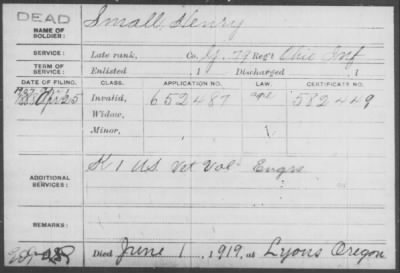 DEAD
NAME OF SOLDIER: Small, Henry
SERVICE: Late rank, Co. G. 79 Reg't Ohio Inf
TERM OF SERVICE: Enlisted , 1 Discharged , 1
DATE OF FILING. CLASS. APPLICATION NO. LAW. CERTIFICATE NO.
Apr 25 Invalid, 652487 582449
Widow,
Minor,
ADDITIONAL SERVICES: K 1 U.S. Vet Vol Engrs
REMARKS:
Died June 1, 1919, at Lyons Oregon